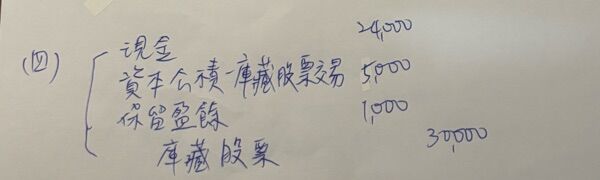 (四) 現金 24,000
資本公積-庫藏股票交易 5,000
保留盈餘 1,000
庫藏股票 30,000